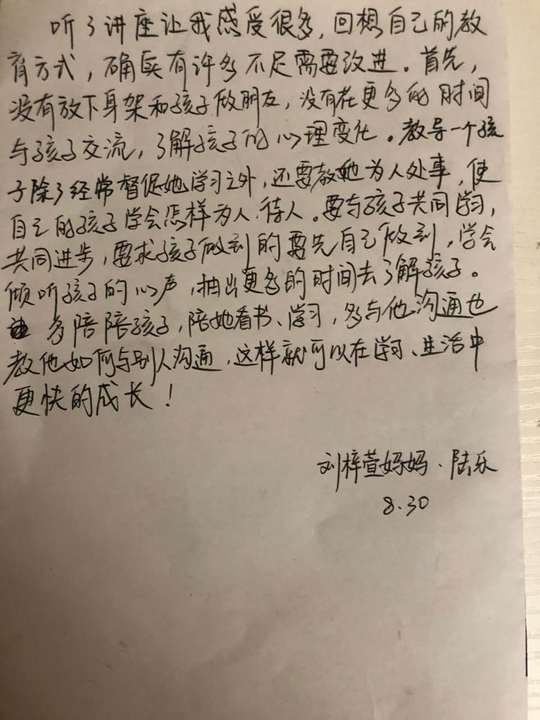 听了讲座让我感受很多，回想自己的教
育方式，确实有许多不足需要改进。首先，
没有放下身架和孩子做朋友，没有在更多的时间
与孩子交流，了解孩子的心理变化。教导一个孩
子除了经常督促她学习之外，还要教她为人处事，使
自己的孩子学会怎样为人、待人。要与孩子共同学习，
共同进步，要求孩子做到的要先自己做到，学会
倾听孩子的心声，抽出更多的时间去了解孩子。
多陪陪孩子，陪她看书、学习，多与他沟通也
教他如何与别人沟通，这样就可以在学习、生活中
更快的成长！
刘梓萱妈妈·陆乐
8.30